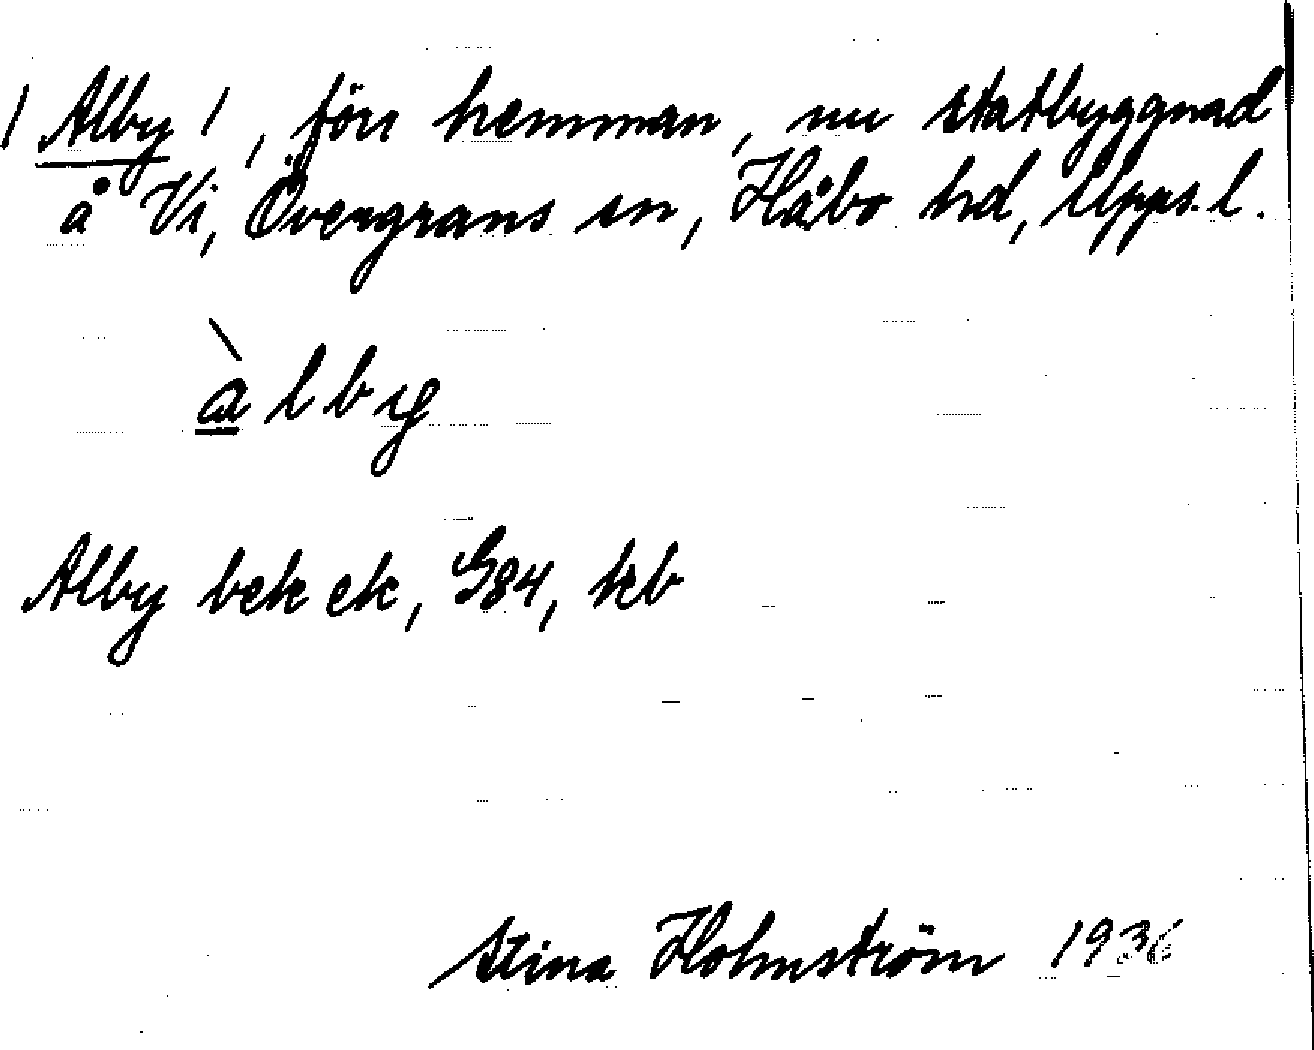 / Alby /, förr hemman, nu statbyggnad
å Vi, Övergrans sn, Håbo hd, Upps. l.
àlby
Alby bek ek, G84, kb
Stina Holmström 1936